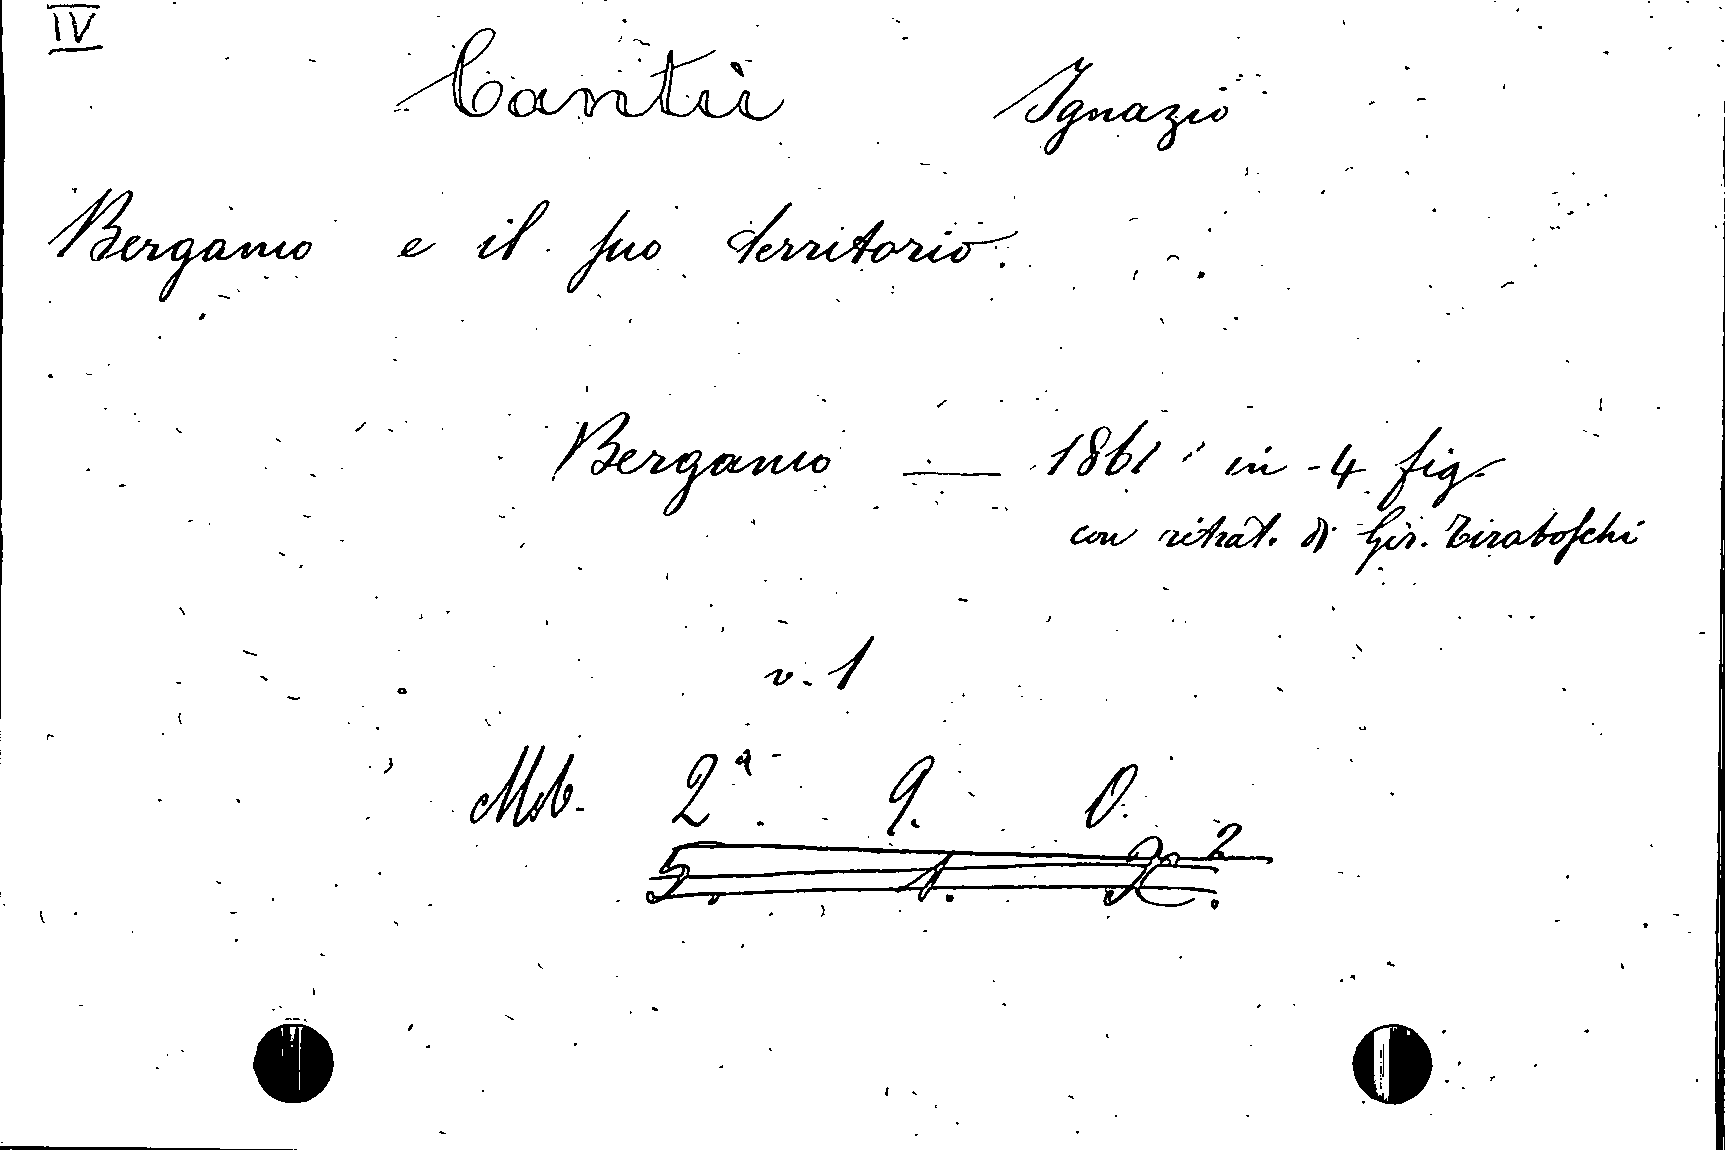 IV
Cantù Ignazio
Bergamo e il suo territorio.
Bergamo — 1861 in-4 fig.
con ritrat. di Gir. Tiraboschi
v. 1
2ª. 9. 0.
5. 1.